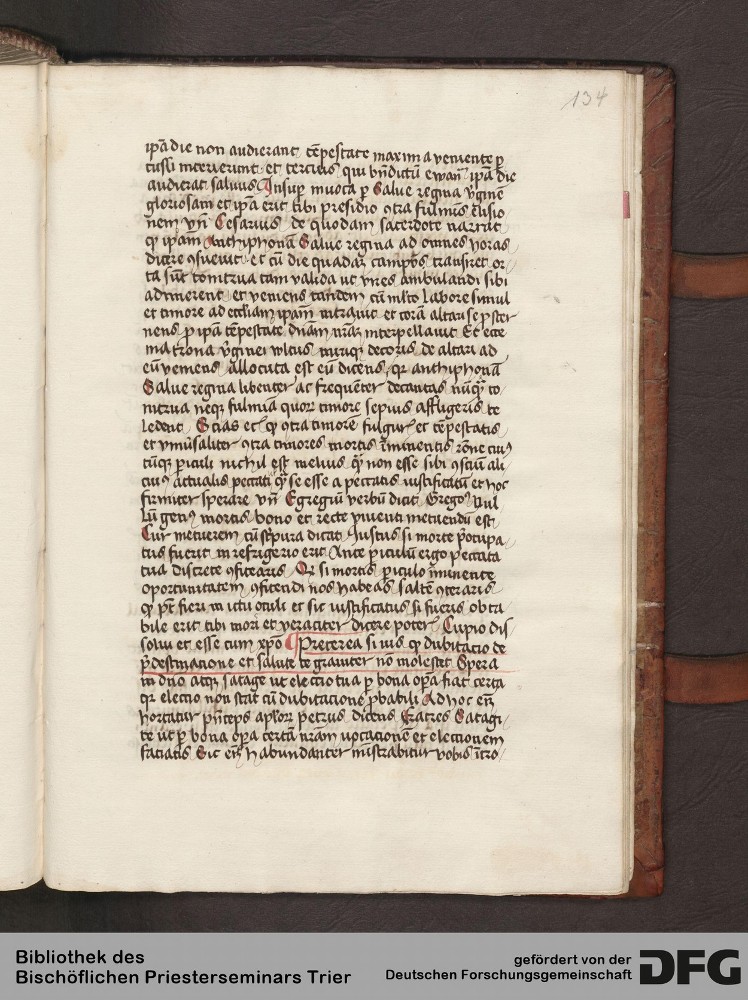 134
ip̄a die non audierant tēpestate maxima veniente ꝑ
cussi interierunt et tercius qui bn̄dictū ewan̄ ip̄a die
audierat saluus Insuꝑ inuoca ꝑ Salue regina v̄ginē
gloriosam et ip̄a erit tibi presidio ꝯtra fulmīs c̄lisio
nem vn̄ Cesarius de quodam sacerdote narrat
qꝫ ip̄am Anthiphonā Salue regina ad omnes horas
dicere ꝯsueuit et cū die quadaꝫ campꝰ transiret or
ta sūt tonitrua tam valida ut vires ambulandi sibi
adimerent et veniens tandem cū ml̄to labore simul
et timore ad eccl̄iam ip̄am intrauit et corā altari se ꝓster
nens ꝓ ip̄a tēpestate dn̄am nr̄aꝫ interpellauit Et ecce
matrona v̄ginei vultus mirūqꝫ decoris de altari ad
eū veniens allocuta est eū dicens qꝛ anthiphonā
Salue regina libenter ac frequēter decantas nūqꝫ to
nitrua neqꝫ fulmīa quoꝝ timore sepius affligeris te
ledent Scias et qꝫ ꝯtra timorē fulguꝝ et tēpestatis
et vniūsaliter ꝯtra timores mortis īminentis rōne cuiꝰ
cūqꝫ ꝑiculi nichil est melius qꝫ non esse sibi ꝯsciū ali
cuiꝰ actualis peccati qꝫ se esse a peccatis iustificatū et hoc
firmiter sperare vn̄ Egregiū verbū dicit Gregoꝰ Nul
lū genus mortis bono et recte viuenti metuendū est
Cur metuerem cū sc̄ptura dicat Iustus si morte p̄occupa
tus fuerit in refrigerio erit Ante ꝑiculū ergo peccata
tua discrete ꝯfitearis Qꝛ si mortis ꝑiculo īminente
oportunitatem ꝯfitendi nos habeas saltē ꝯteraris
qꝫ pt̄ fieri in ictu oculi et sic iustificatus si fueris optā
bile erit tibi mori et veraciter dicere poteris Cupio dis
solui et esse cum xp̄o ¶ Preterea si vis qꝫ dubitacio de
p̄destinacione et salute te grauiter nō molestet Spera
in dn̄o atqꝫ satage ut electio tua ꝑ bona oꝑa fiat certa
qꝛ electio non stat cū dubitacione ꝓbabili Ad hoc em̄
hortatur p̄nceps ap̄loꝝ petrus dicens Fratres Satagi
te ut ꝑ bona oꝑa certā vr̄am vocacionē et electionem
faciatis Sic em̄ habundanter mīstrabitur vobis ītro
Bibliothek des
Bischöflichen Priesterseminars Trier
gefördert von der
Deutschen Forschungsgemeinschaft
DFG